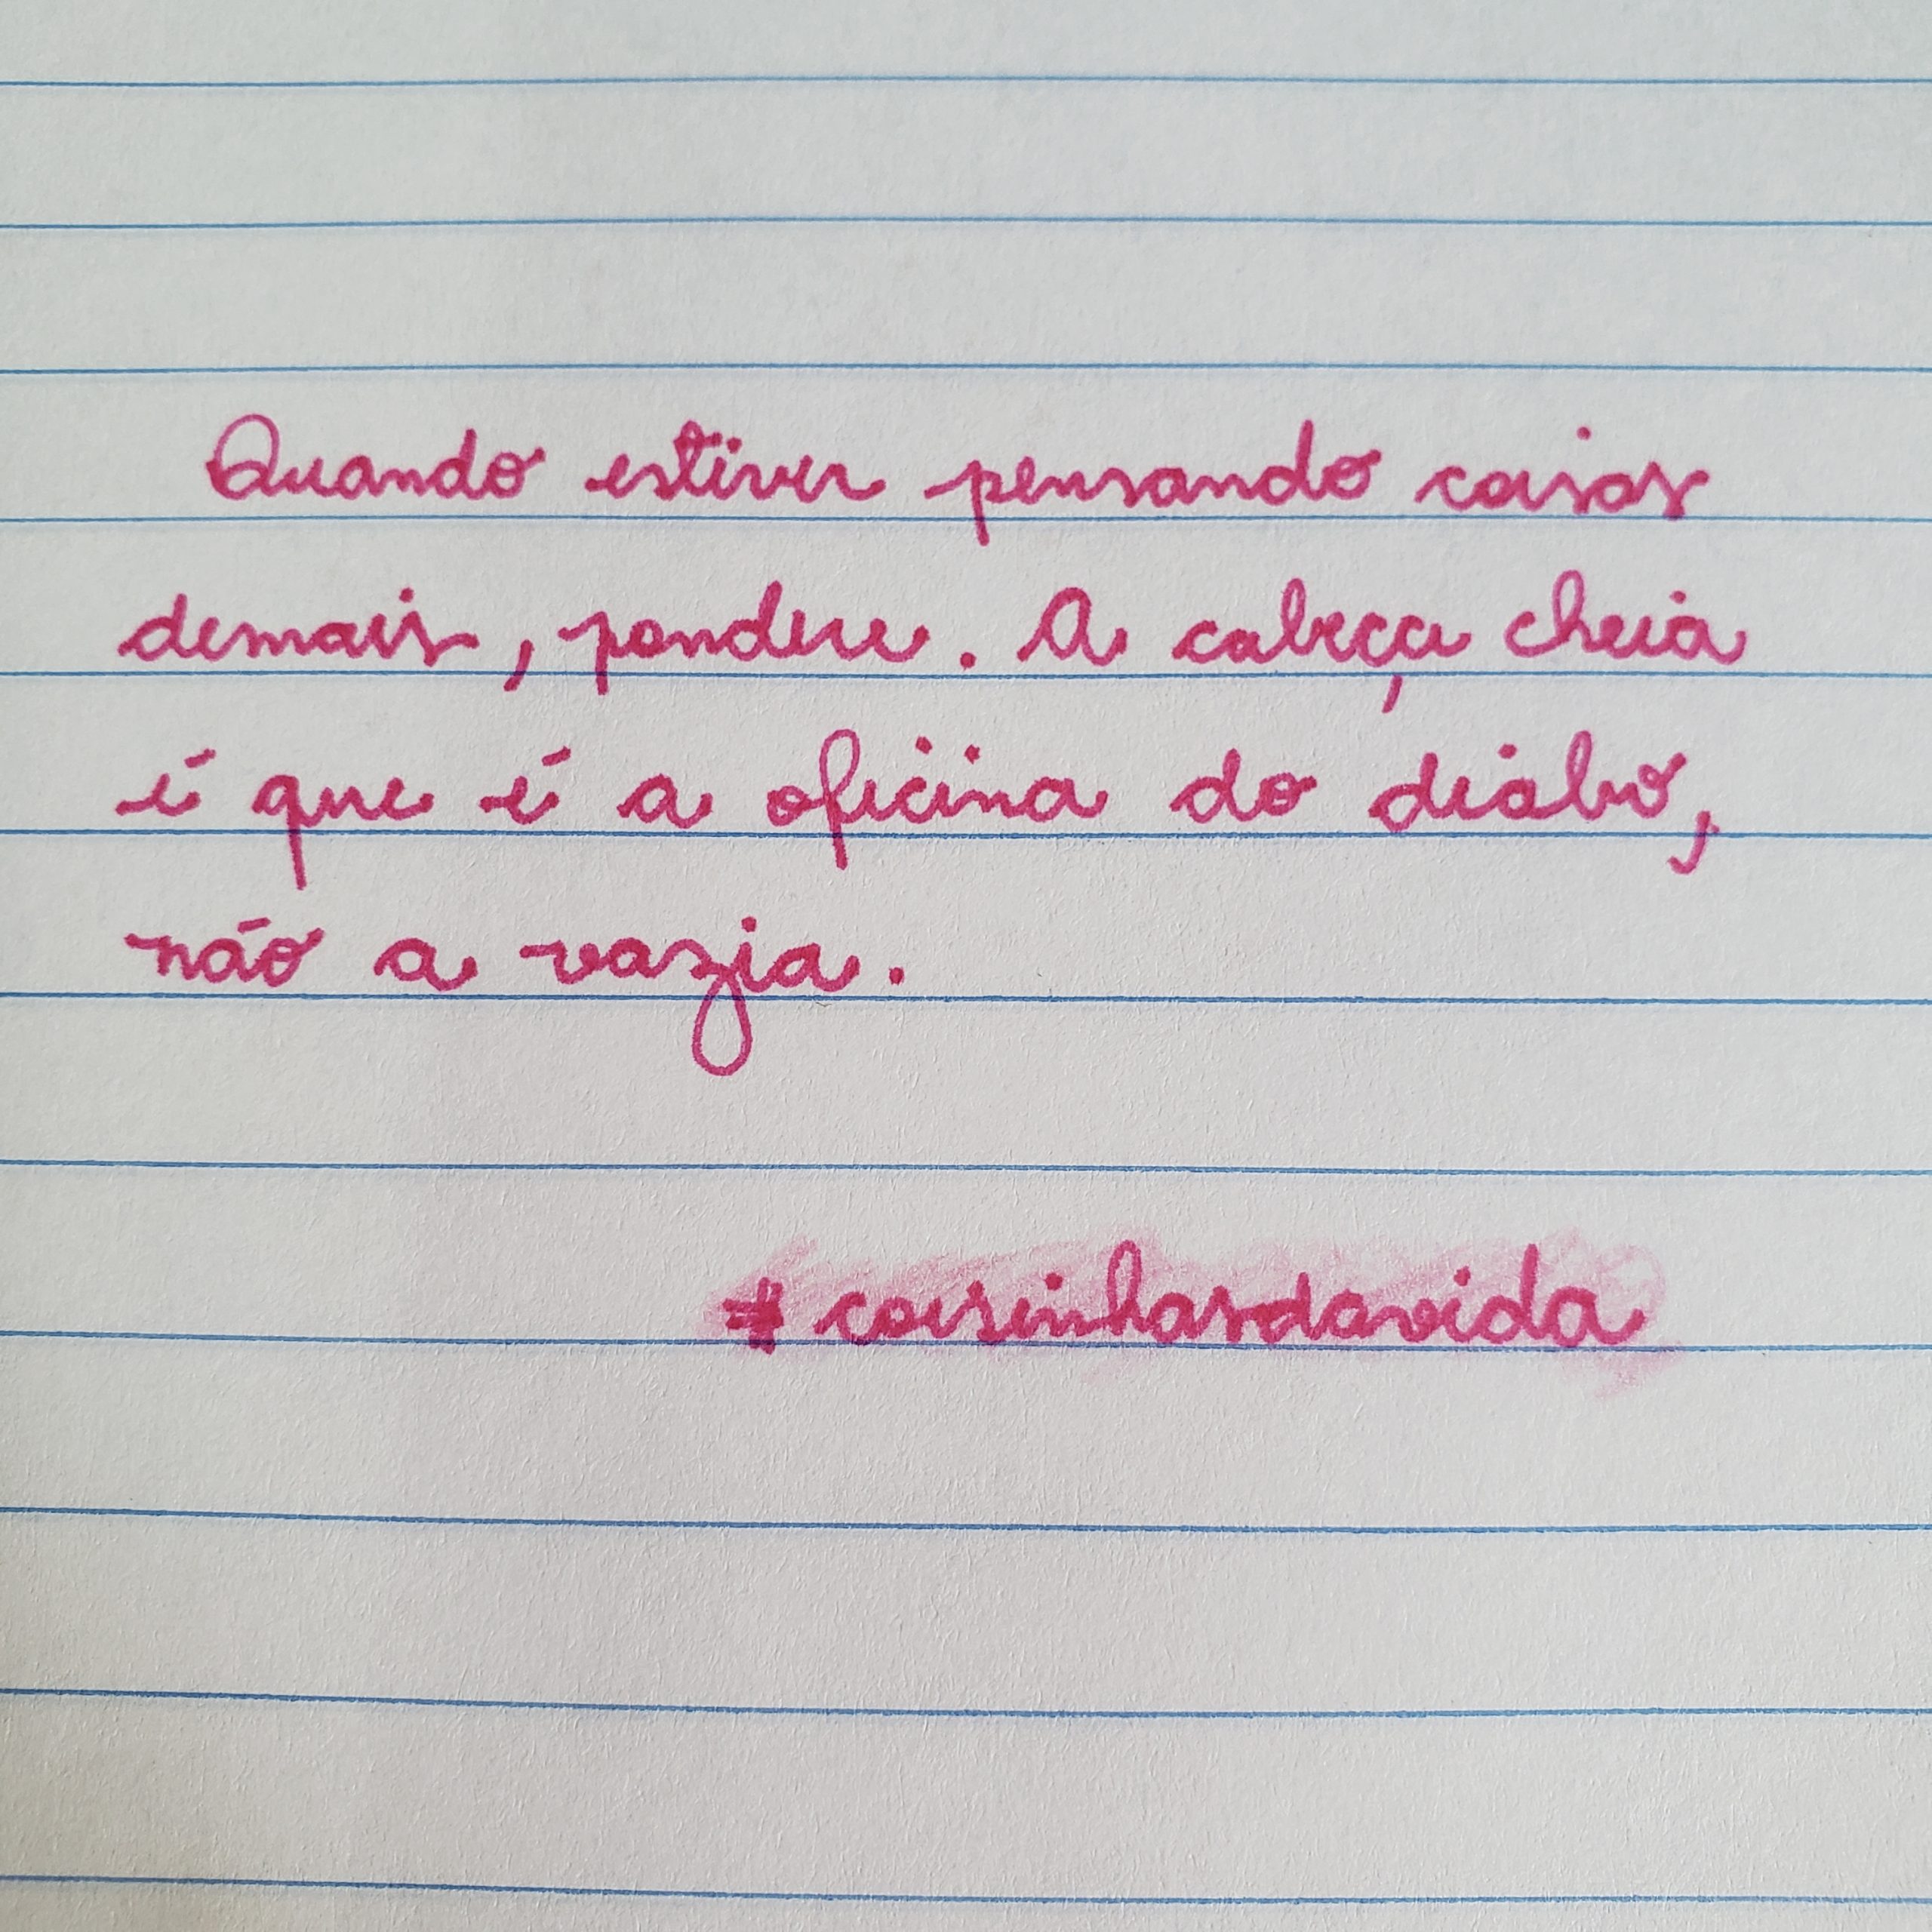 Quando estiver pensando coisas
demais, pondere. A cabeça cheia
é que é a oficina do diabo,
não a vazia.
#coisinhasdavida